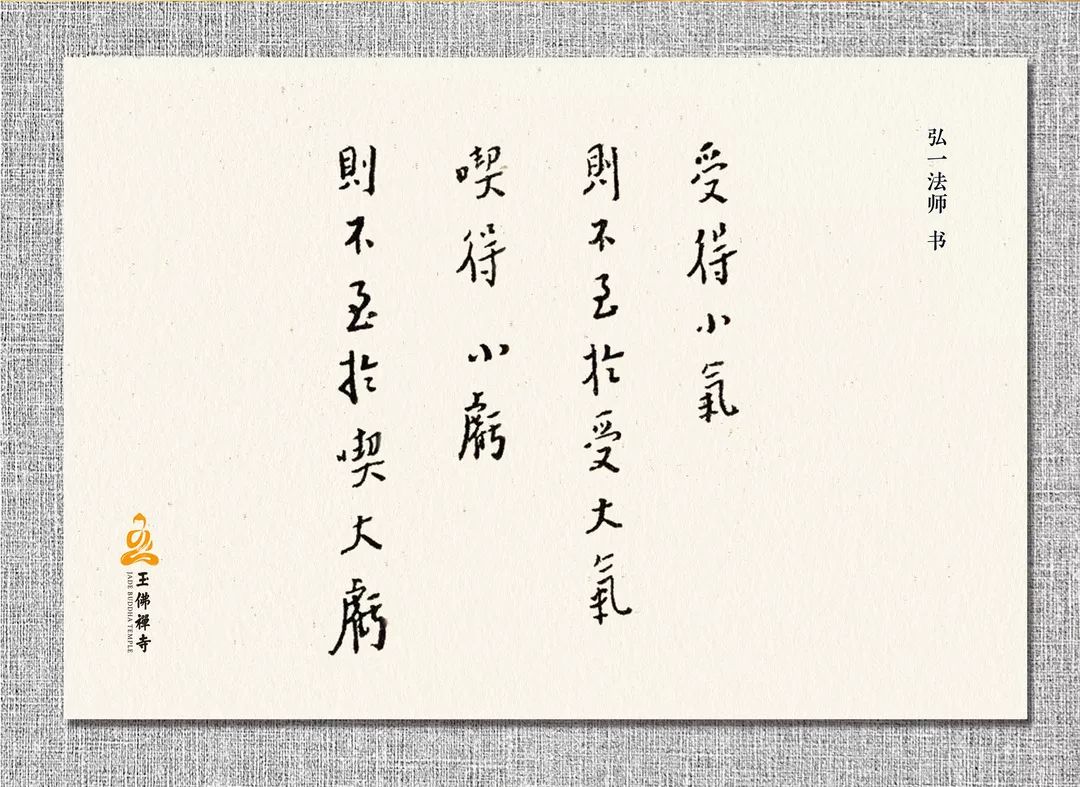 弘一法师 书
受得小氣
則不至於受大氣
喫得小虧
則不至於喫大虧
玉佛禅寺
JADE BUDDHA TEMPLE